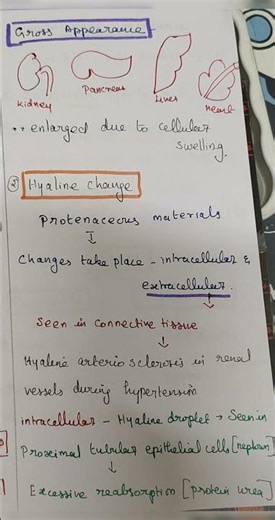 Gross Appearance
Kidney
Pancreas
Liver
Heart
** enlarged due to cellular
swelling.
② Hyaline change
Protenaceous materials
↓
Changes take place - intracellular &
extracellular.
↓
Seen in connective tissue
↓
Hyaline arterio sclerosis in renal
vessels during hypertension
intracellular - Hyaline droplet → Seen in
Proximal tubular epithelial cells [nephron]
↓
Excessive reabsorption [protein urea]